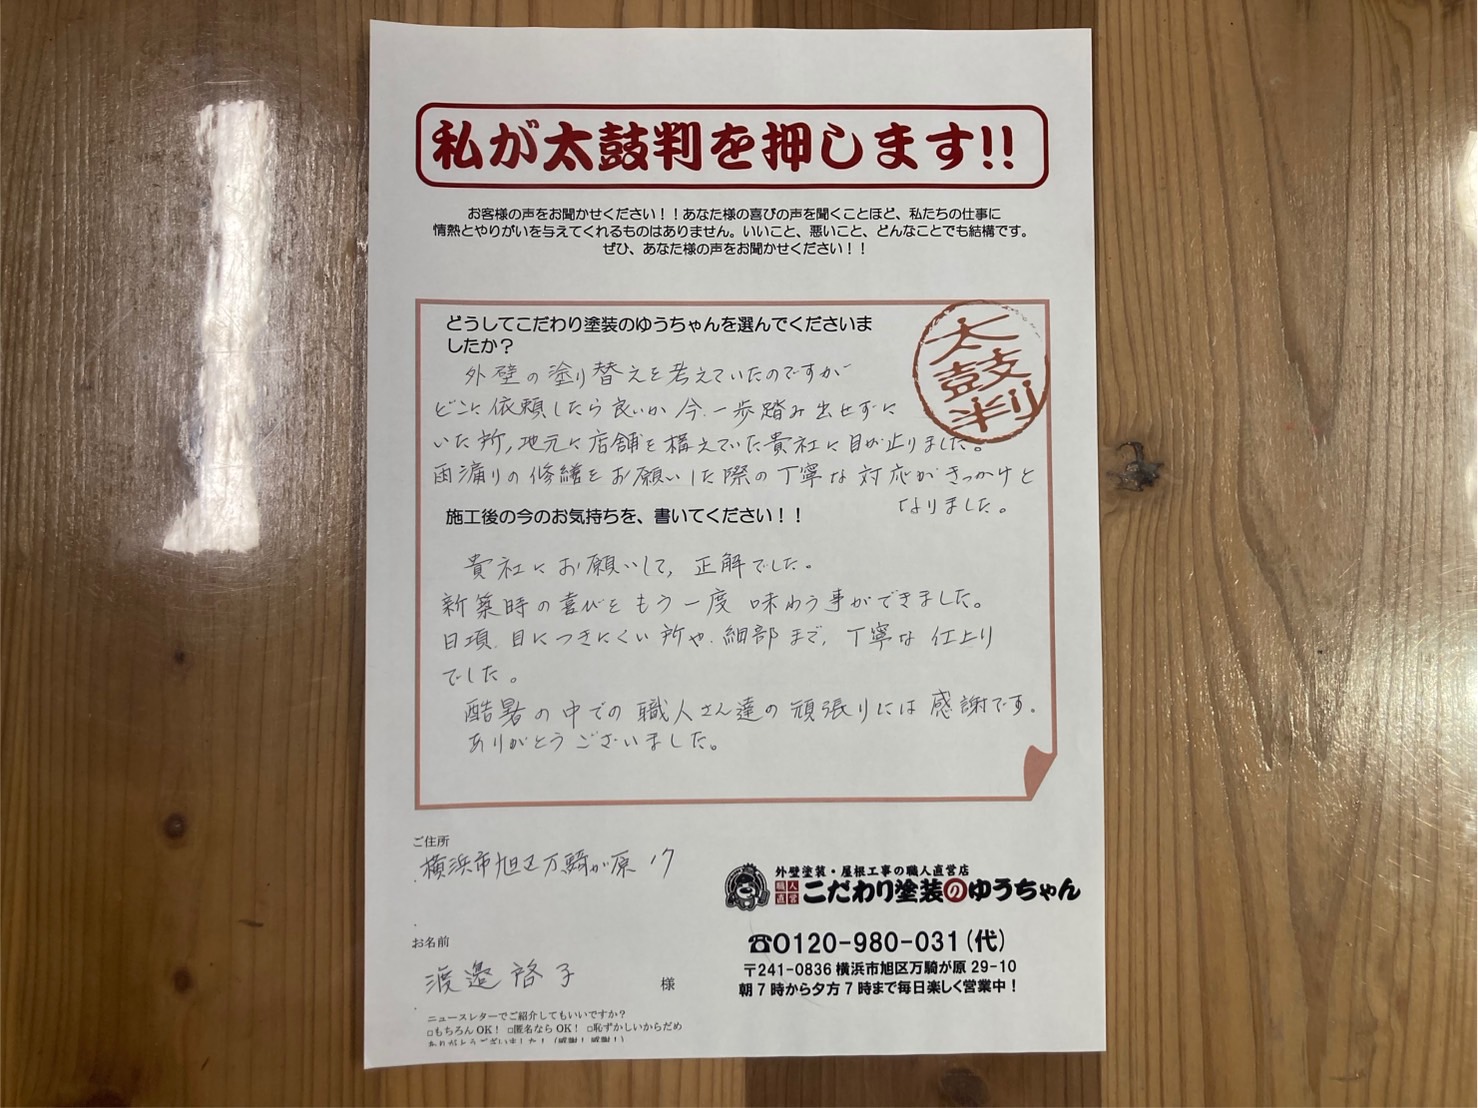 私が太鼓判を押します!!
お客様の声をお聞かせください！！あなた様の喜びの声を聞くことほど、私たちの仕事に
情熱とやりがいを与えてくれるものはありません。いいこと、悪いこと、どんなことでも結構です。
ぜひ、あなた様の声をお聞かせください！！
太鼓判
どうしてこだわり塗装のゆうちゃんを選んでくださいま
したか？
外壁の塗り替えを考えていたのですが
どこに依頼したら良いか今、一歩踏み出せずに
いた所,地元に店舗を構えていた貴社に目が止りました。
雨漏りの修繕をお願いした際の丁寧な対応がきっかけと
なりました。
施工後の今のお気持ちを、書いてください！！
貴社にお願いして、正解でした。
新築時の喜びをもう一度 味わう事ができました。
日頃、目につきにくい所や、細部まで、丁寧な仕上り
でした。
酷暑の中での職人さん達の頑張りには感謝です。
ありがとうございました。
ご住所
横浜市旭区万騎が原
お名前
渡邉啓子 様
ニュースレターでご紹介してもいいですか？
□もちろんOK！ □匿名ならOK！ □恥ずかしいからだめ
ありがとうございました！（感謝！感謝！）
外壁塗装・屋根工事の職人直営店
職人直営 こだわり塗装のゆうちゃん
☎0120-980-031(代)
〒241-0836 横浜市旭区万騎が原 29-10
朝７時から夕方７時まで毎日楽しく営業中！